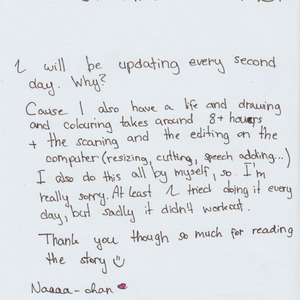 I will be updating every second
day. Why?
Cause I also have a life and drawing
and colouring takes around 8+ hours
+ the scaning and the editing on the
computer (resizing, cutting, speech adding...)
I also do this all by myself, so I'm
really sorry. At least I tried doing it every
day, but sadly it didn't workout.
Thank you though so much for reading
the story
Naaaa-chan